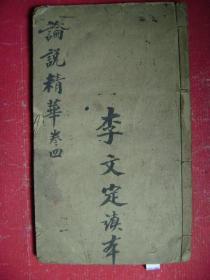 論説精華卷四
李文定讀本